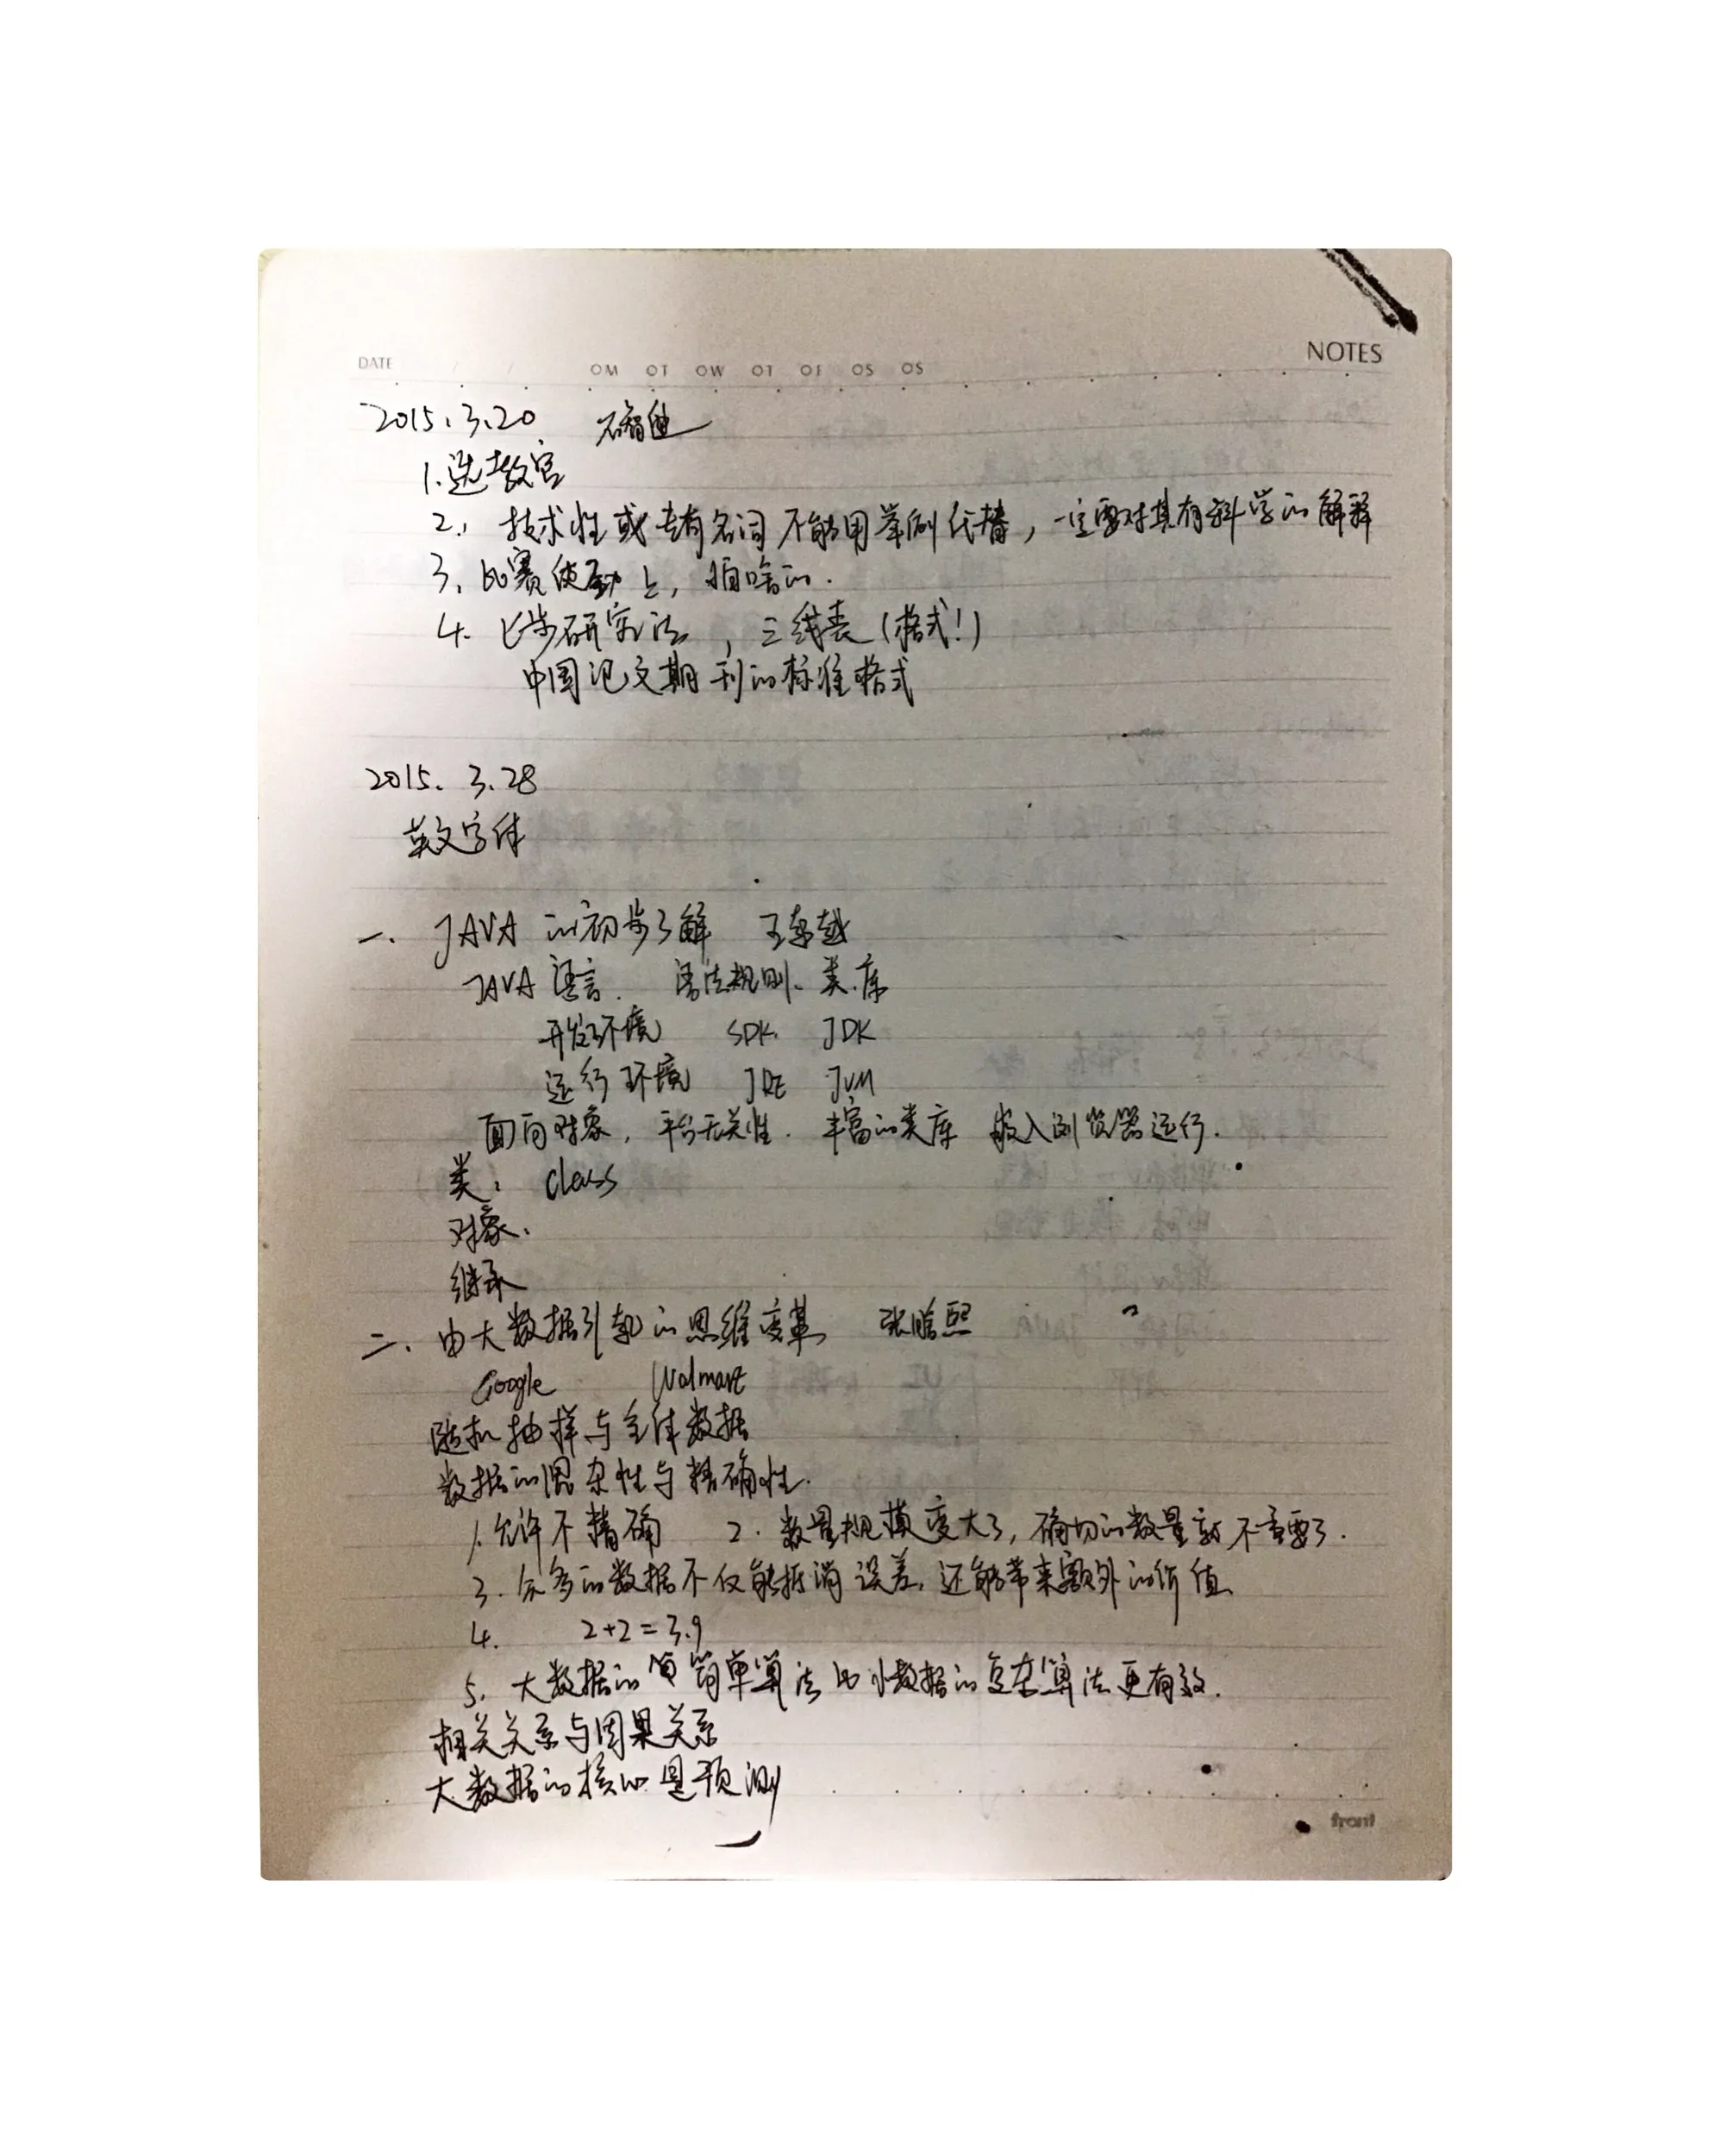 NOTES
DATE / / OM OT OW OT OF OS OS
2015.3.20 石智迪
1.选教室
2. 技术性或专有名词不能用举例代替，一定要对其有科学的解释
3. 比赛使劲上，怕啥的.
4. 七步研究法，三线表(格式!)
中国论文期刊的标准格式
2015. 3.28
英文字体
一. JAVA 的初步了解 王东越
JAVA 语言. 语法规则. 类.库
开发环境 SDK. JDK
运行环境 JRE JVM
面向对象, 平台无关性. 丰富的类库 嵌入浏览器运行.
类: class
对象.
继承
二. 由大数据引起的思维变革 张晗熙
Google Walmart
随机抽样与全体数据
数据的混杂性与精确性.
1.允许不精确 2. 数量规模变大了, 确切的数量就不重要了.
3. 众多的数据不仅能抵消误差, 还能带来额外的价值.
4. 2+2=3.9
5. 大数据的简单算法比小数据的复杂算法更有效.
相关关系与因果关系
大数据的核心是预测
front